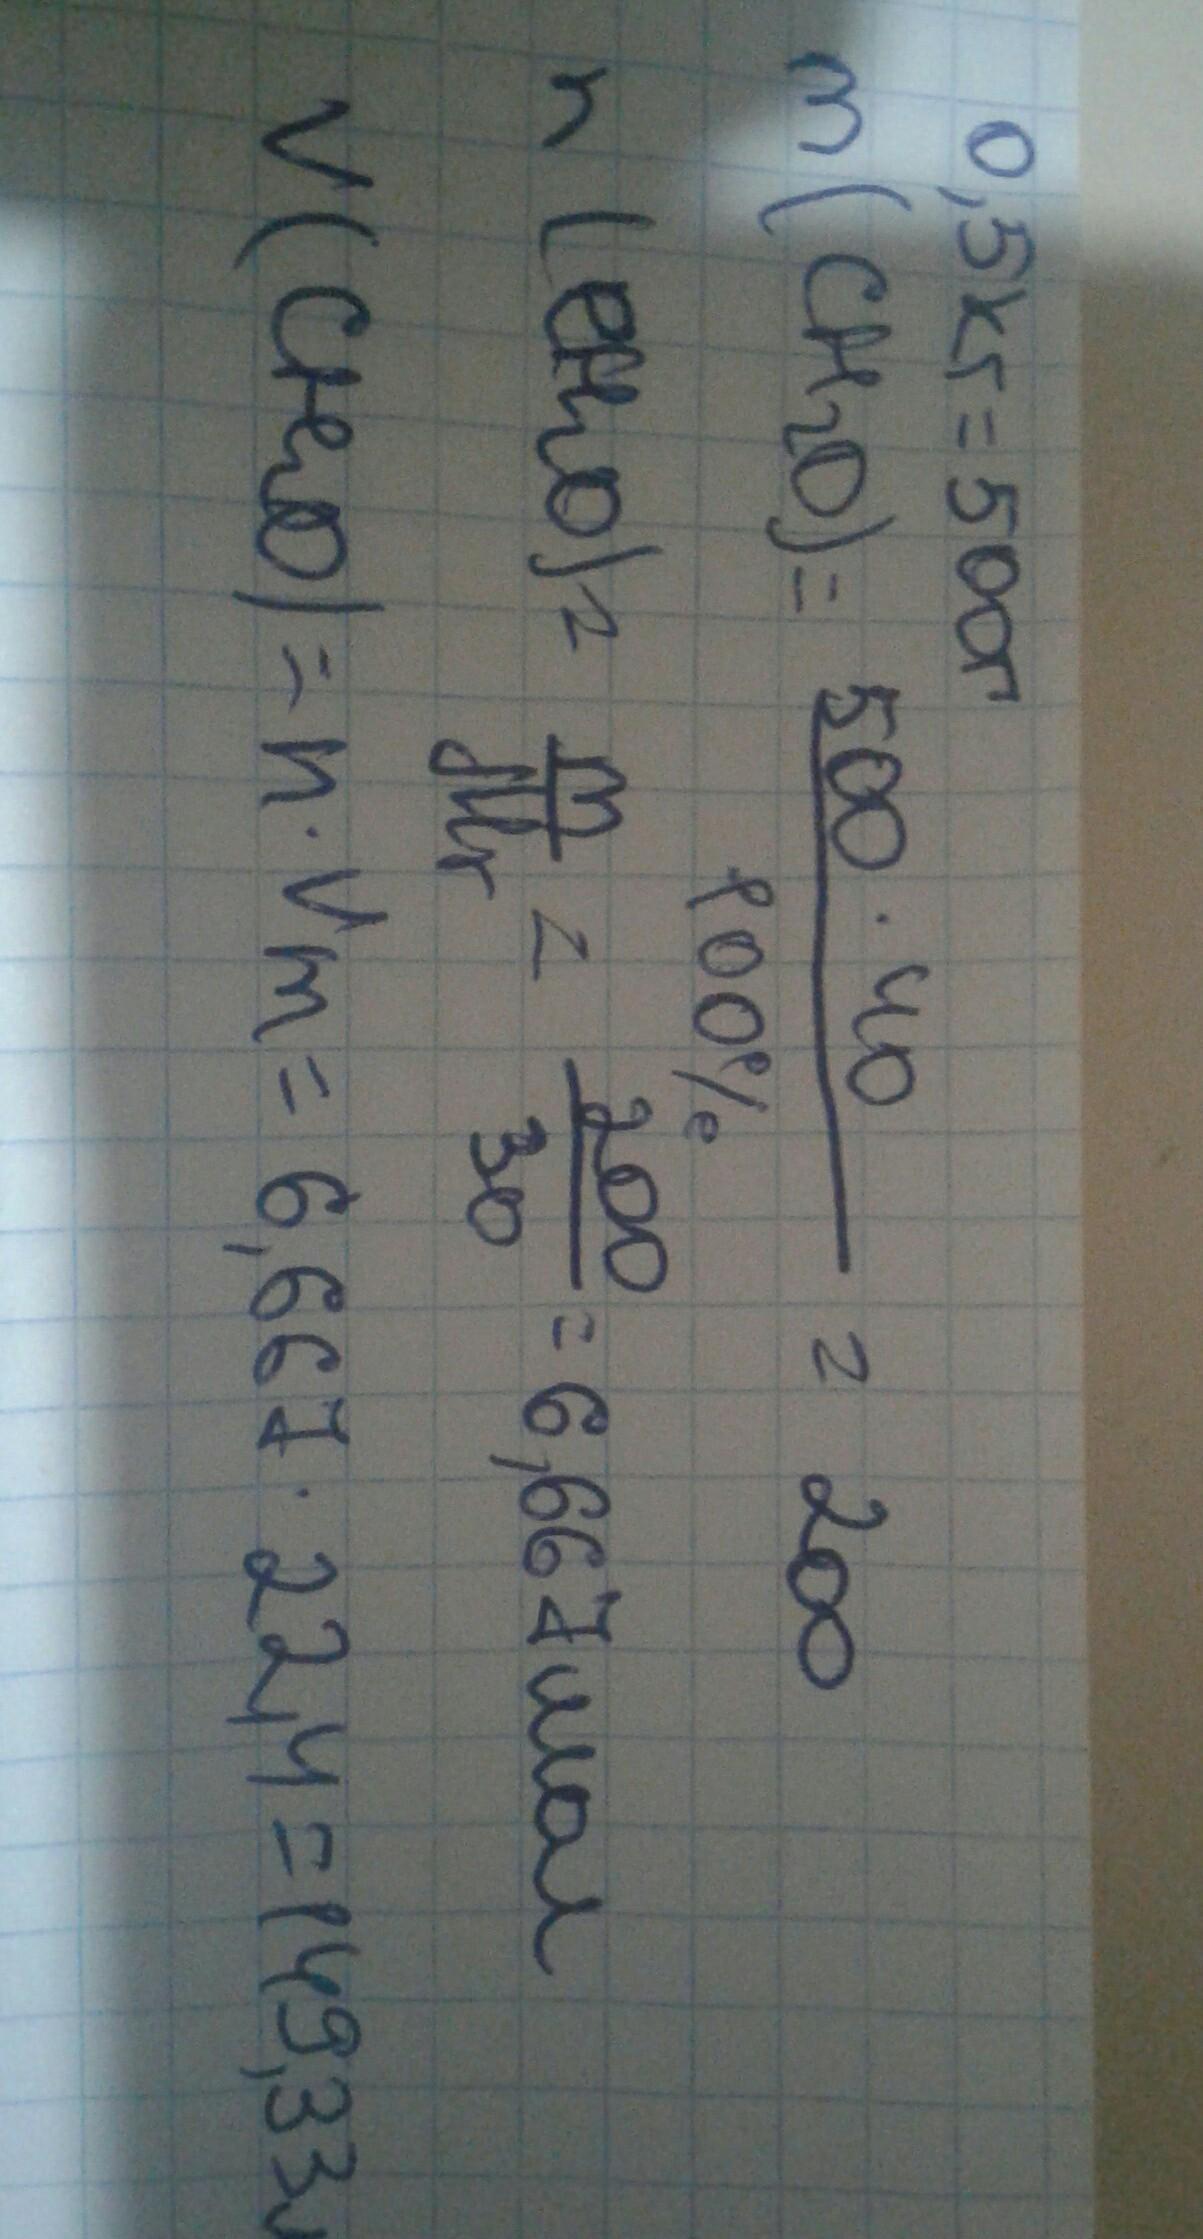 0,5кг=500г
m(CH2O)= 500·40 / 100% = 200
n(CH2O)= m/Mr = 200/30 = 6,667моль
V(CH2O)=n·Vm=6,667·22,4=149,33л